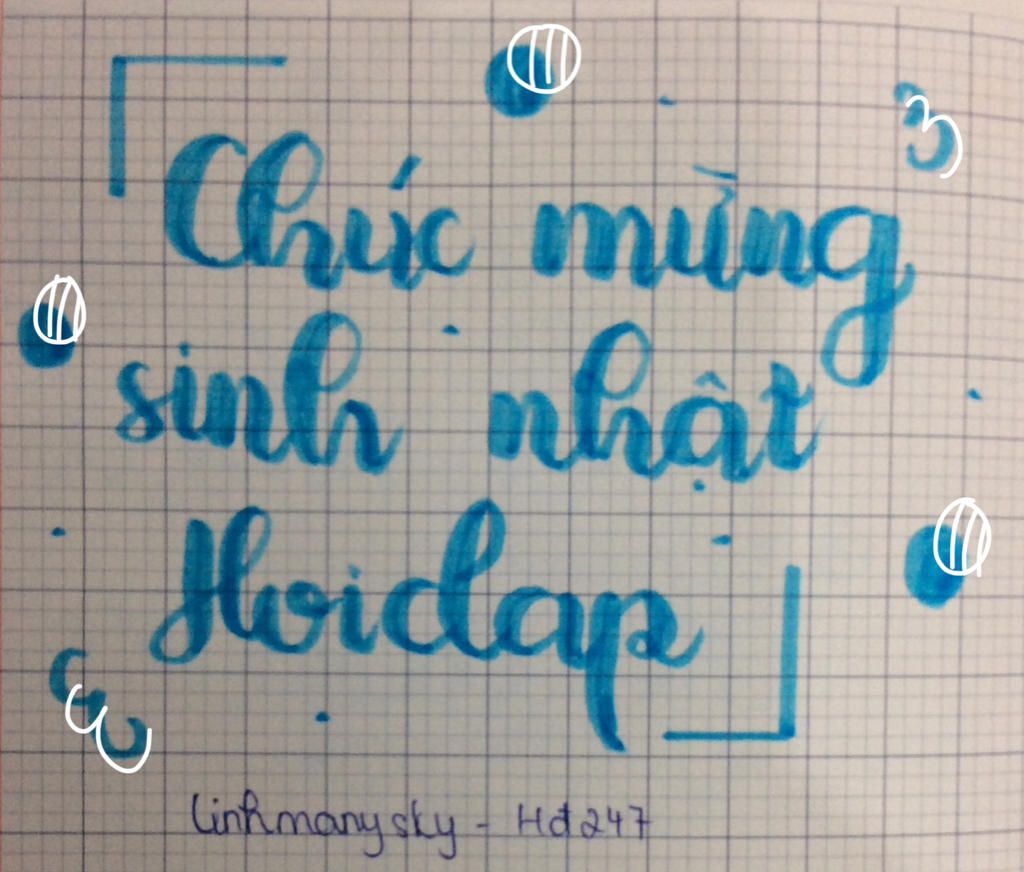 Chúc mừng
sinh nhật
Hoidap
linhmanysky - Hđ247